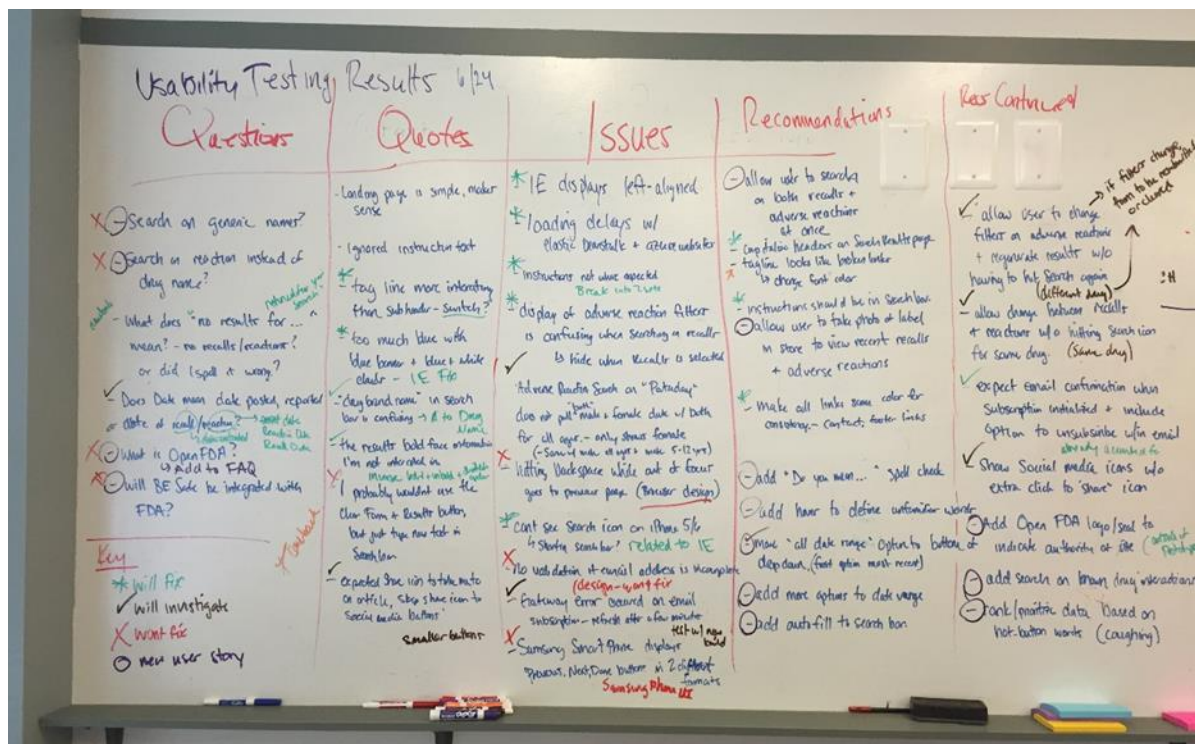 Usability Testing Results 6/24
Questions
Search on generic names?
Search on reaction instead of
drug name?
What does "no results for..."
mean? - no recalls/reactions?
or did I spell it wrong?
Does Date mean date posted, reported
or date of recall/reaction?
What is OpenFDA?
Add to FAQ
Will BE Safe be integrated with
FDA?
Key
* will fix
✓ will investigate
X wont fix
O new user story
Quotes
- Landing page is simple, makes
sense
- Ignored instruction text
* tag line more interesting
than subheader - switch?
* too much blue with
blue banner + blue + white
- IE Fdo
"drug brand name" in search
bar is confusing
- the results bold face information
I'm not interested in
I probably wouldn't use the
Clear Form + Results button,
but just type new text in
Search bar
- expected share icon to take me to
an article, skip share icon to
social media buttons
smaller buttons
Issues
* IE displays left-aligned
* loading delays w/
elastic beanstalk + azurewebsites
* instructions not where expected
Break into 2
* display of adverse reaction filters
is confusing when searching on recalls
↳ hide when Recalls is selected
Adverse Reaction Search on "Pataday"
does not pull male + female data w/ both
for all ages - only shows female
- hitting backspace while out of focus
goes to previous page (Browser design)
* cant see search icon on iPhone 5/6
related to IE
X - No validation if email address is incomplete
(design - wont fix)
Gateway error occurred on email
subscription - refresh after a few minutes
test w/ new build
X - Samsung Smart Phone displays
Previous, Next, Done buttons in 2 different
formats
Samsung Phone UI
Recommendations
- allow user to search
on both recalls +
adverse reactions
at once
* capitalize headers on Search Results page
- tagline looks like broken link
↳ change font color
* - instructions should be in search bar
- allow user to take photo of label
in store to view recent recalls
+ adverse reactions
* - make all links same color for
consistency - contact, footer links
- add "Do you mean..." spell check
- add hover to define unfamiliar words
- move "all date range" option to bottom of
dropdown. (first option most recent)
- add more options to date range
- add autofill to search bar
Recs Continued
if filters change
or cleared
- allow user to change
filters on adverse reactions
+ regenerate results w/o
having to hit search again
(different drug)
- allow change between recalls
+ reactions w/o hitting search icon
for same drug. (same drug)
expect email confirmation when
Subscription initiated + include
option to unsubscribe w/in email
Show Social media icons w/o
extra click to "share" icon
Add Open FDA logo/seal to
indicate authority of site
- add search on known drug interactions
- rank/prioritize data based on
hot-button words (coughing)